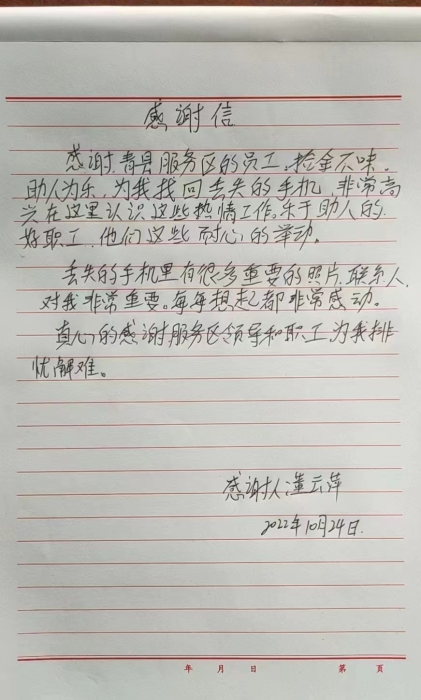 感谢信
感谢青县服务区的员工,拾金不味,
助人为乐,为我找回丢失的手机,非常高
兴在这里认识这些热情工作,乐于助人的
好职工,他们这些耐心的举动。
丢失的手机里有很多重要的照片,联系人,
对我非常重要。每每想起都非常感动。
真心的感谢服务区领导和职工,为我排
忧解难。
感谢人:董云萍
2022年10月24日.
年 月 日 第 页